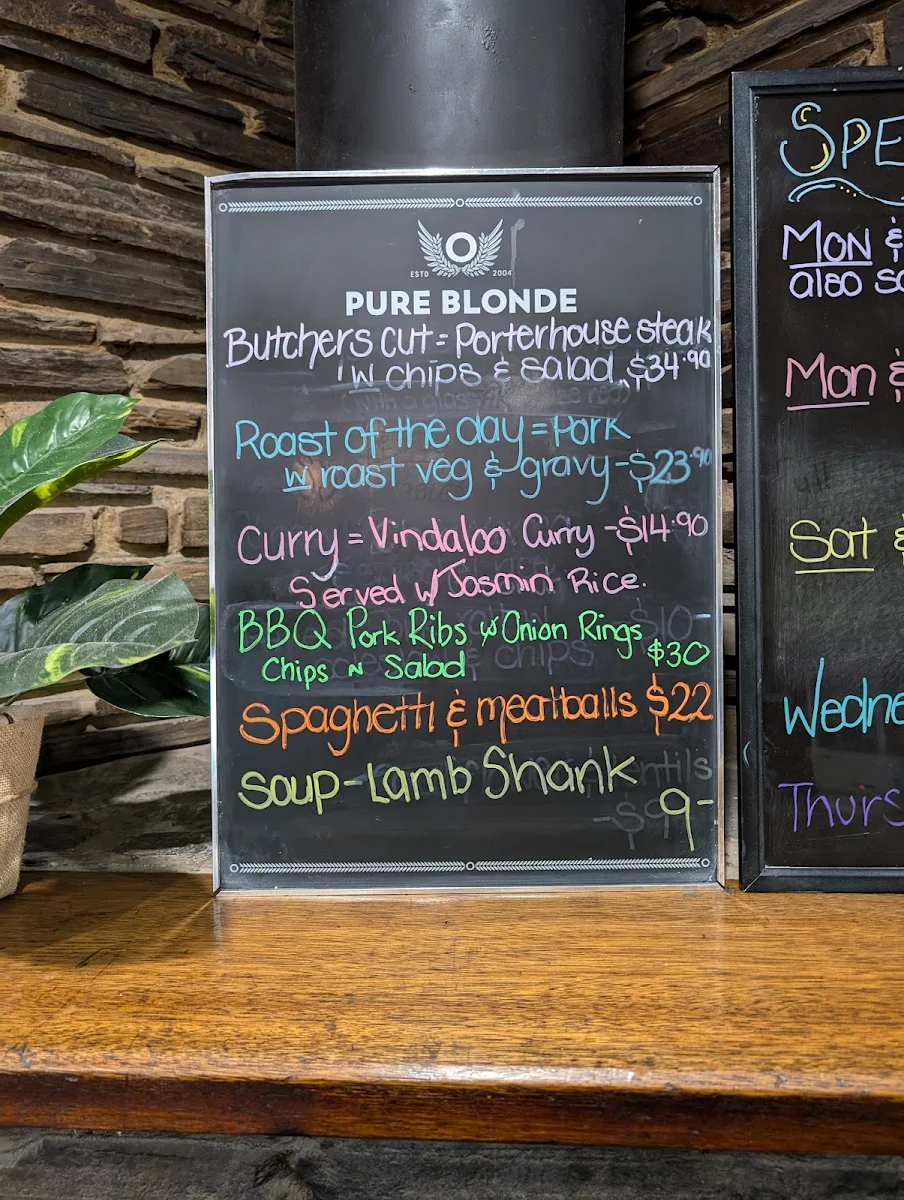 ESTD 2004
PURE BLONDE
Butchers cut = Porterhouse steak
w chips & salad $34.90
Roast of the day = Pork
w roast veg & gravy - $23.90
Curry = Vindaloo Curry - $14.90
Served w/ Jasmin Rice.
BBQ Pork Ribs w Onion Rings
Chips N Salad $30
Spaghetti & meatballs $22
Soup - Lamb Shank
9-
SPE
Mon &
also
Mon &
Sat &
Wedne
Thurs